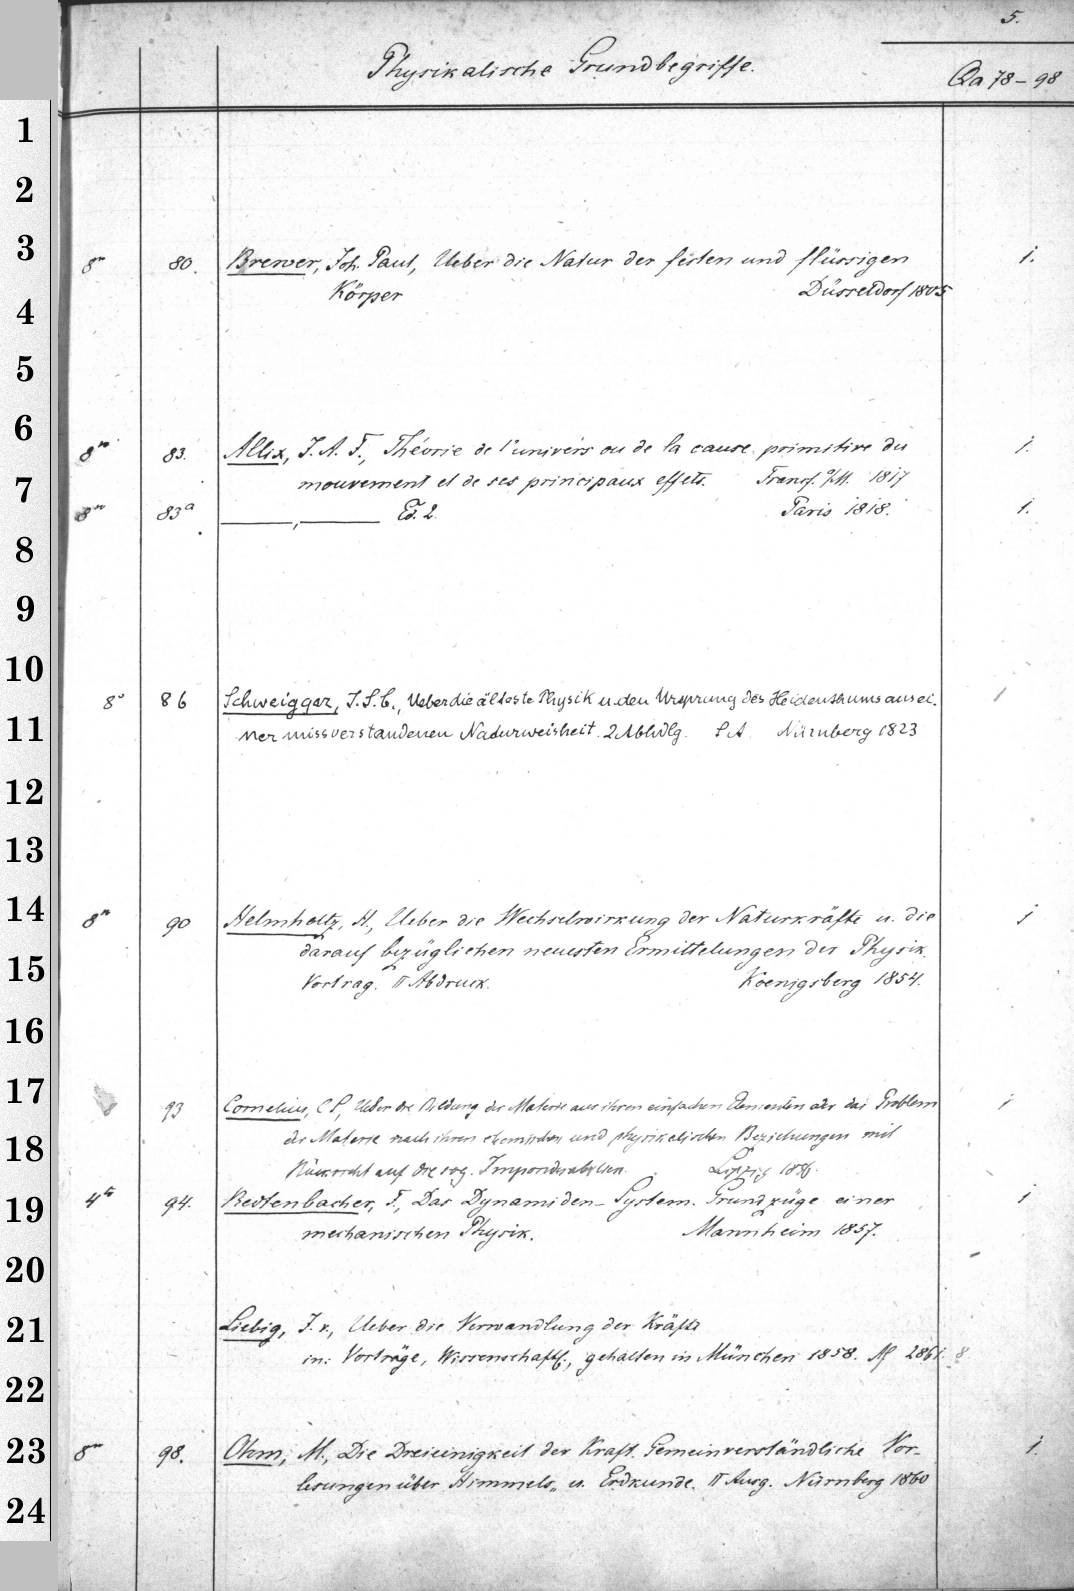 5.
Physikalische Grundbegriffe.
Qa 78-98
1
2
3
8° 80. Brewer, Joh. Paul, Ueber die Natur der festen und flüssigen 1.
Körper Düsseldorf 1805
4
5
6
8° 83. Allix, J. A. F., Théorie de l'univers ou de la cause primitive du 1.
7
mouvement et de ses principaux effets. Francf. a/M. 1817
8° 83a ———, ——— Ed. 2. Paris 1818. 1.
8
9
10
8° 86 Schweigger, J. S. C., Ueber die älteste Physik u. den Ursprung des Heidenthums aus ei- 1
11
ner missverstandenen Naturweisheit. 2 Abhdlg. S A Nürnberg 1823
12
13
14
8° 90 Helmholtz, H., Ueber die Wechselwirkung der Naturkräfte u. die 1
darauf bezüglichen neuesten Ermittelungen der Physik.
15
Vortrag. II Abdruck. Koenigsberg 1854.
16
17
93 Cornelius, C S, Ueber die Bildung der Materie aus ihren einfachen Elementen oder das Problem 1
18
der Materie nach ihren chemischen und physikalischen Beziehungen mit
Rücksicht auf die sog. Imponderabilien. Leipzig 1856.
19
4to 94. Redtenbacher, F., Das Dynamiden-System. Grundzüge einer 1
mechanischen Physik. Mannheim 1857.
20
21
Liebig, J. v., Ueber die Verwandlung der Kräfte
in: Vorträge, Wissenschaftl., gehalten in München 1858. Af 2861. 8
22
23
8° 98. Ohm, M., Die Dreieinigkeit der Kraft. Gemeinverständliche Vor- 1.
lesungen über Himmels- u. Erdkunde. II Ausg. Nürnberg 1860
24